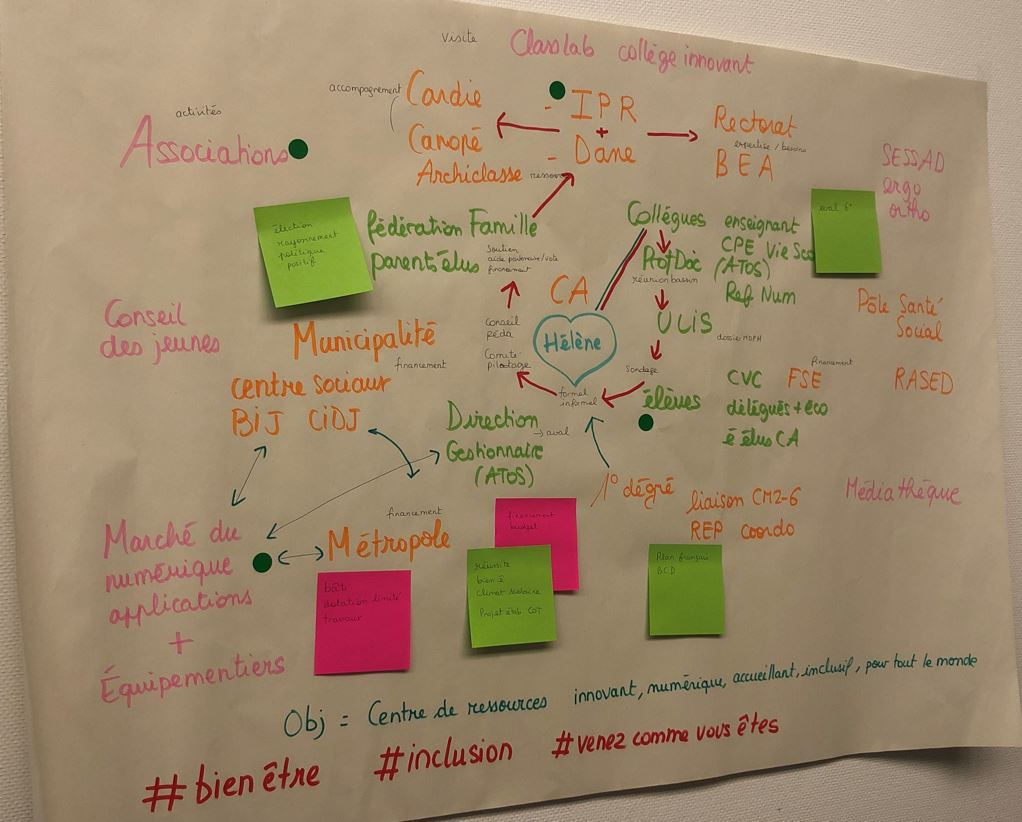 visite
Classlab collège innovant
accompagnement
Cardie
Canopé
Archiclasse
- IPR
+
- Dane
Rectorat
expertise / besoins
BEA
activités
Associations
SESSAD
ergo
ortho
élection
rayonnement
politique
positif
fédération Famille
parents élus
Soutien
aide partenaire/vote
financement
Collégues
enseignant
CPE Vie Sco
(ATOS)
Ref Num
Prof Doc
réunion bassin
eval 6°
CA
Hélène
ULIS
dossier MDPH
Conseil
péda
Comité
pilotage
Sondage
formel
informel
Pôle Santé
Social
RASED
Conseil
des jeunes
Municipalité
financement
centre sociaux
BiJ CiDJ
élèves
financement
CVC FSE
délégués + éco
é élus CA
Direction
Gestionnaire
(ATOS)
→ aval
1° dégré
liaison CM2-6
REP coordo
Médiathèque
Marché du
numérique
applications
+
Équipementiers
financement
Métropole
financement
budget
bâti
dotation limité
travaux
réussite
bien ê
climat scolaire
Projet étab COT
Plan français
BCD
Obj = Centre de ressources innovant, numérique, accueillant, inclusif, pour tout le monde
#bien être #inclusion #venez comme vous êtes